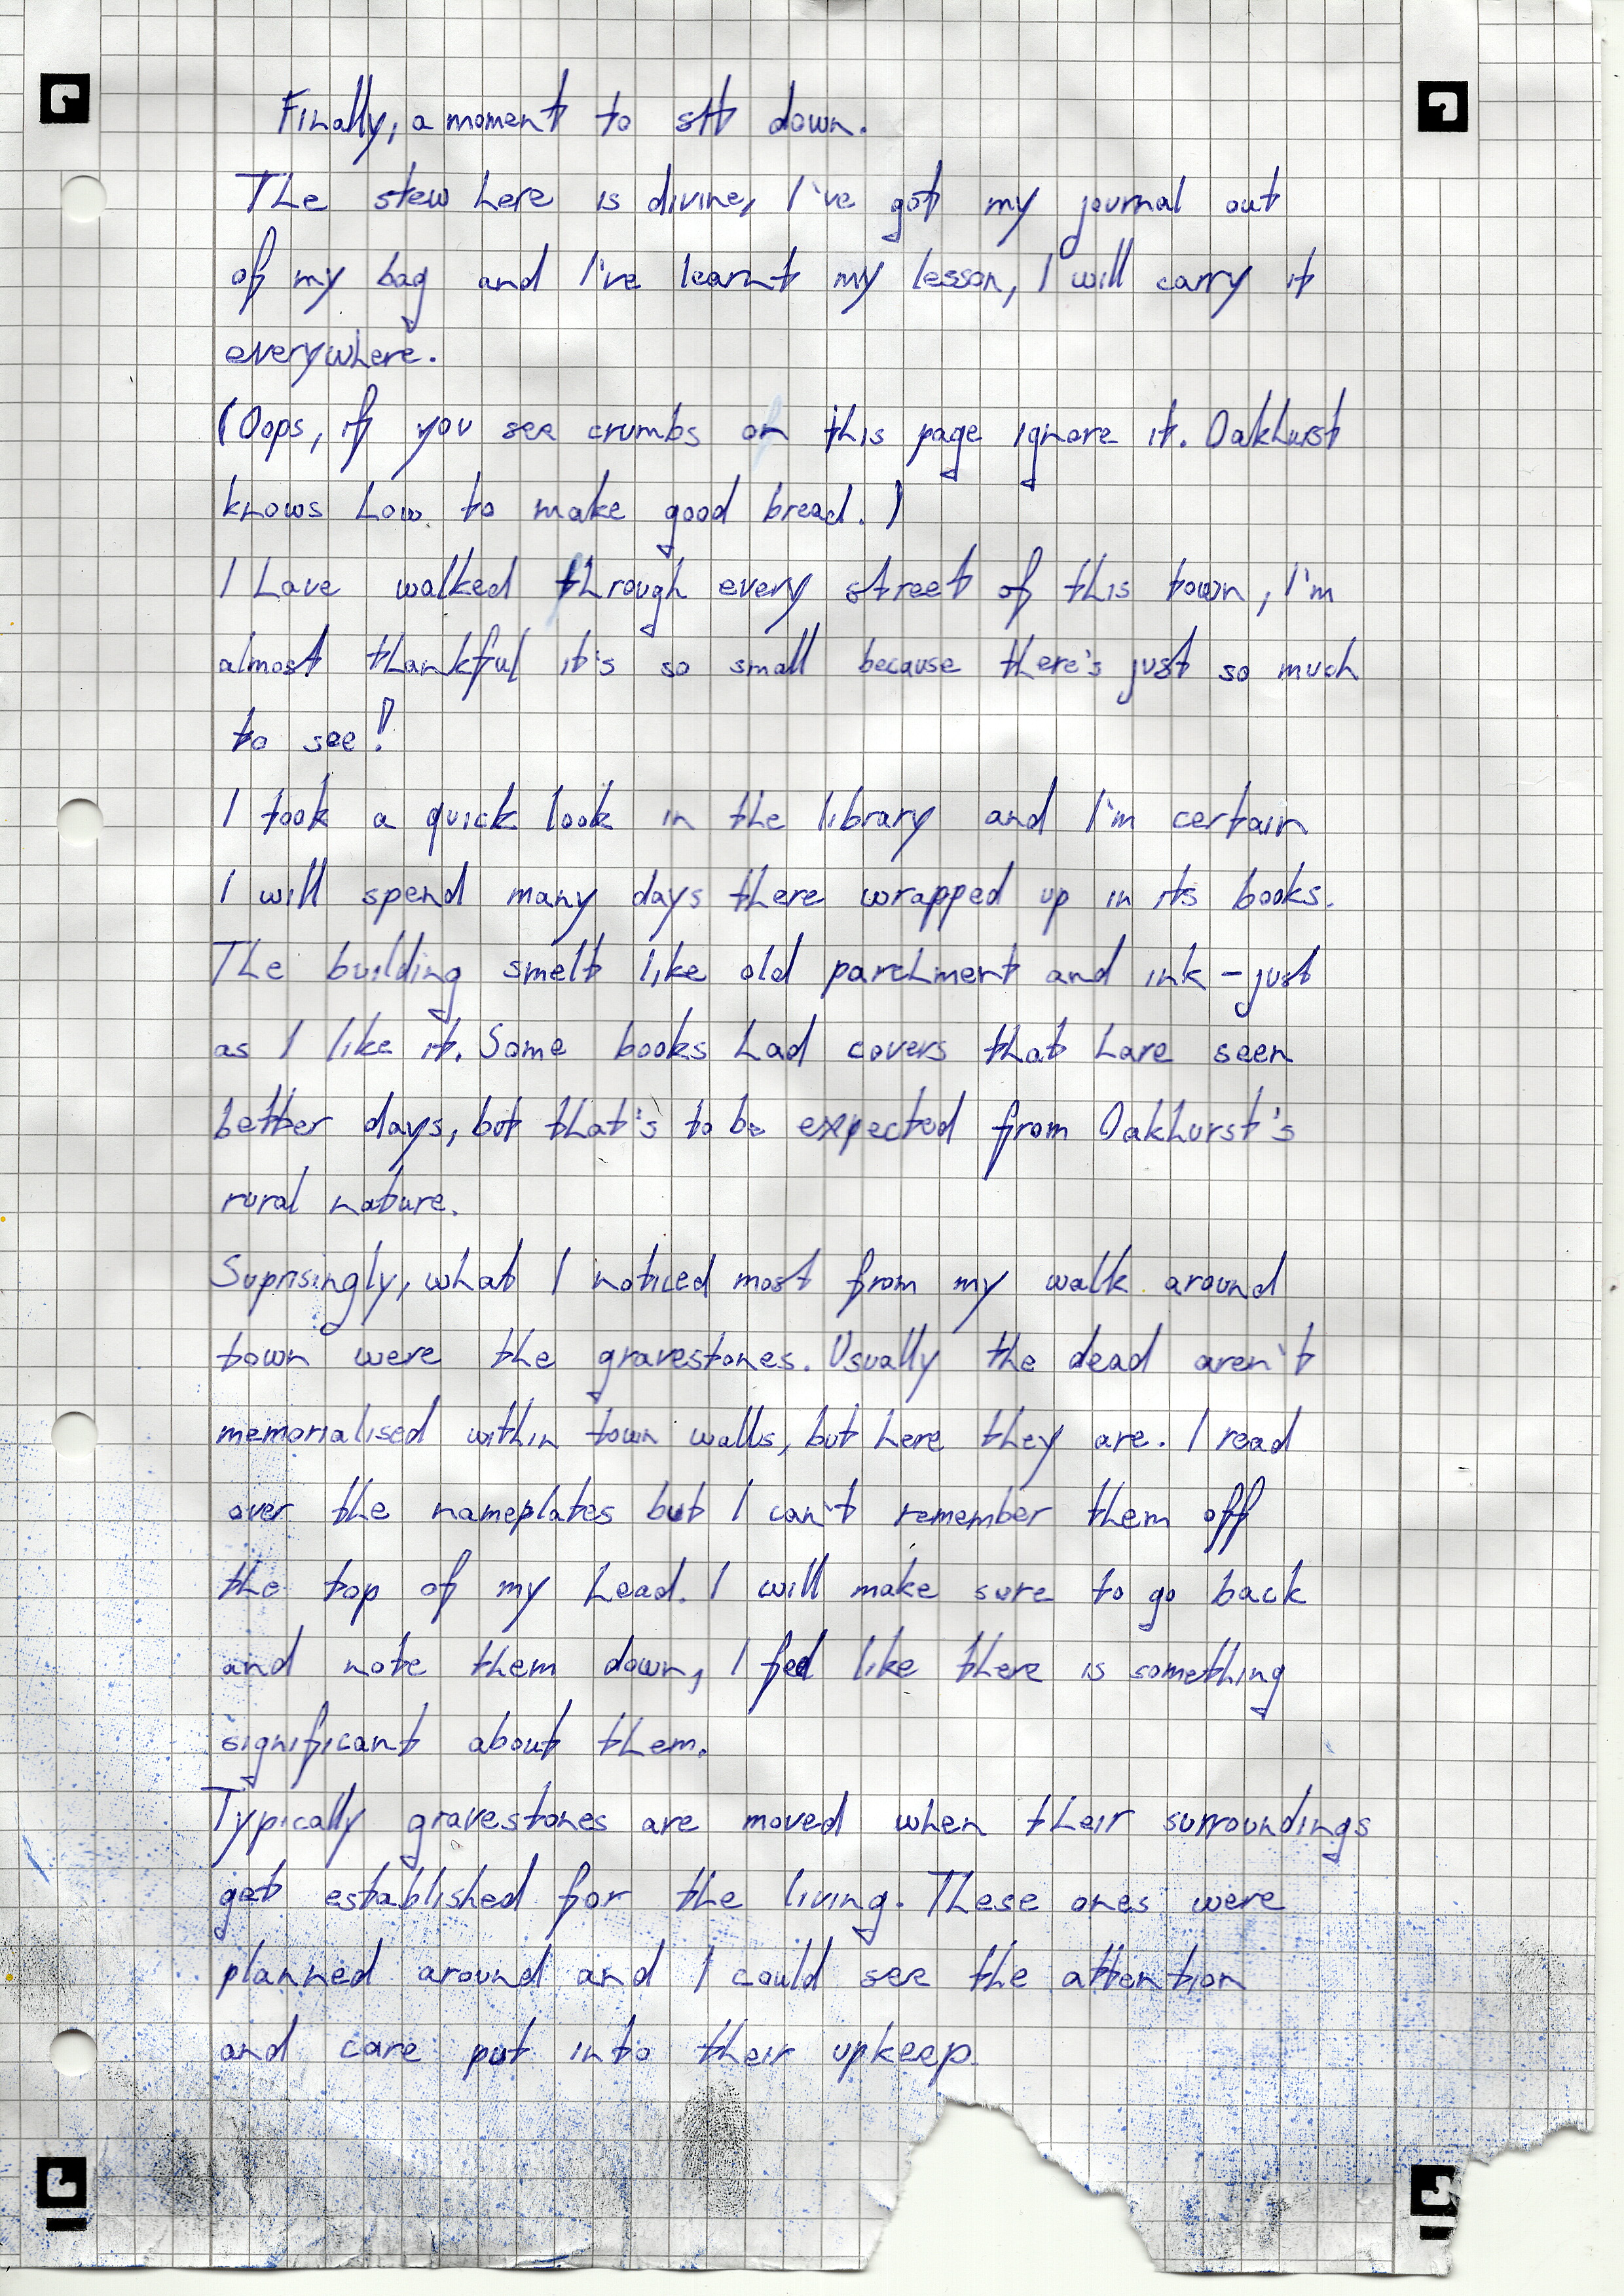 Finally, a moment to sit down.
The stew here is divine, I've got my journal out
of my bag and I've learnt my lesson, I will carry it
everywhere.
(Oops, if you see crumbs on this page ignore it. Oakhurst
knows how to make good bread.)
I have walked through every street of this town, I'm
almost thankful it's so small because there's just so much
to see!
I took a quick look in the library and I'm certain
I will spend many days there wrapped up in its books.
The building smelt like old parchment and ink - just
as I like it. Some books had covers that have seen
better days, but that's to be expected from Oakhurst's
rural nature.
Suprisingly, what I noticed most from my walk around
town were the gravestones. Usually the dead aren't
memorialised within town walls, but here they are. I read
over the nameplates but I can't remember them off
the top of my head. I will make sure to go back
and note them down, I feel like there is something
significant about them.
Typically gravestones are moved when their surroundings
get established for the living. These ones were
planned around and I could see the attention
and care put into their upkeep.